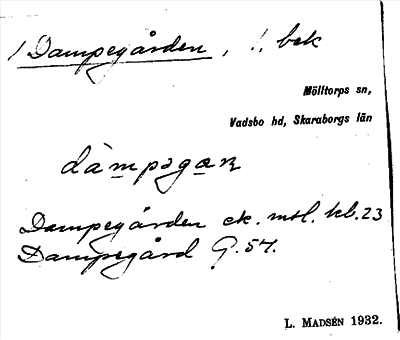 / Dampegården, !, bek
Mölltorps sn,
Vadsbo hd, Skaraborgs län
dàmpəgaɳ
Dampegården ek. msl. kb. 23
Dampegård G. 57.
L. MADSÉN 1932.